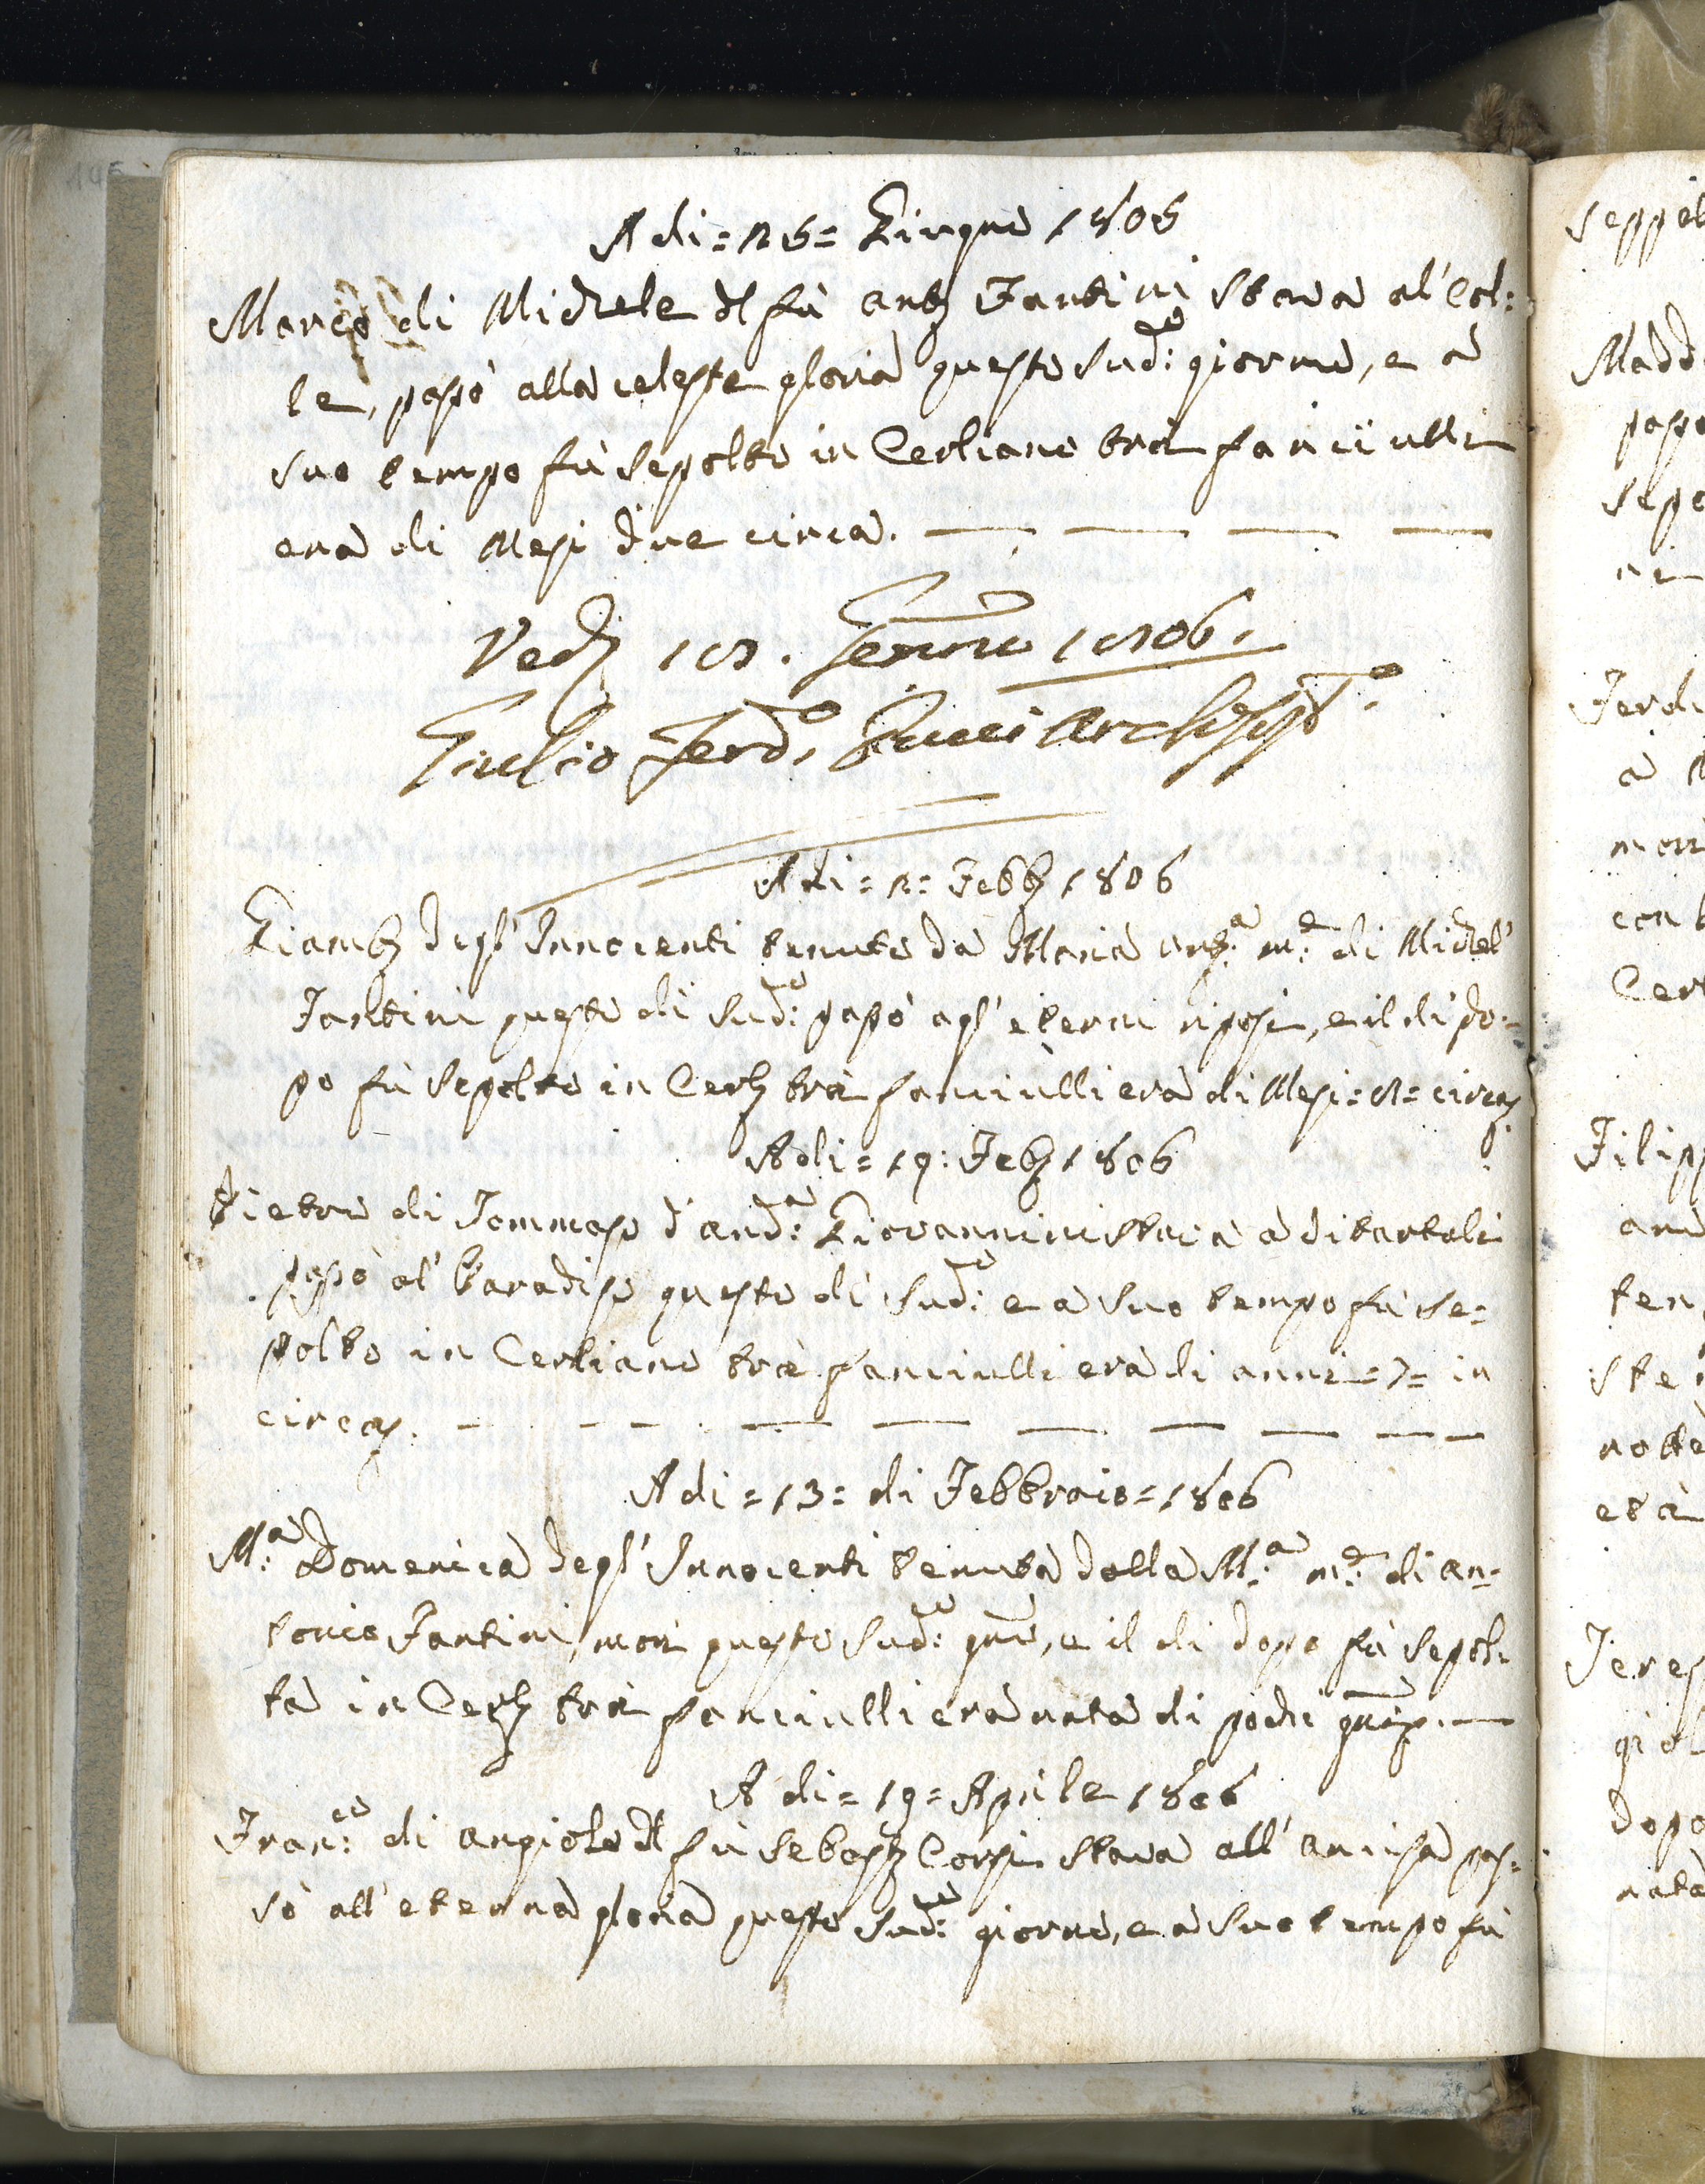 A di = 25 = Giugno 1805
Marco di Michele del fù Anto Fantini stava al' Col:
le, passò alla celeste gloria questo sud:o giorno, e à
suo tempo fù sepolto in Cerliano trà fanciulli
era di Mesi due circa.
Vedi 18. Genno 1806.
Giulio Ferd.o Arcipte.
A di = 2 = Febbo 1806
Giamba degl' Innocenti tenuto da Maria Ant:a m:e di Michel'
Fantini questo dì sud:o passò agl' eterni riposi, e il dì do=
po fù sepolto in Cerlo trà fanciulli era di Mesi = 2 = circa.
A di = 19: Febo 1806
Pietro di Tommaso d'And:a Giovannini stava à Ditartoli
passò al' Paradiso questo dì sud:o e a suo tempo fù se=
polto in Cerliano trà fanciulli era di anni = 7 = in
circa.
A di = 13 = di Febbraio = 1806
M:a Domenica degl' Innocenti tenuta dalla M:a m:e di An=
tonio Fantini, morì questo sud:o gno, e il dì dopo fù sepol=
ta in Cerlo trà fanciulli era nata di pochi
A di = 19 = Aprile 1806
Fran:co di Angiolo del fù Sebasto Corsi stava all' Ancisa pas=
sò all' eterna gloria questo sud:o giorno, e à suo tempo fù